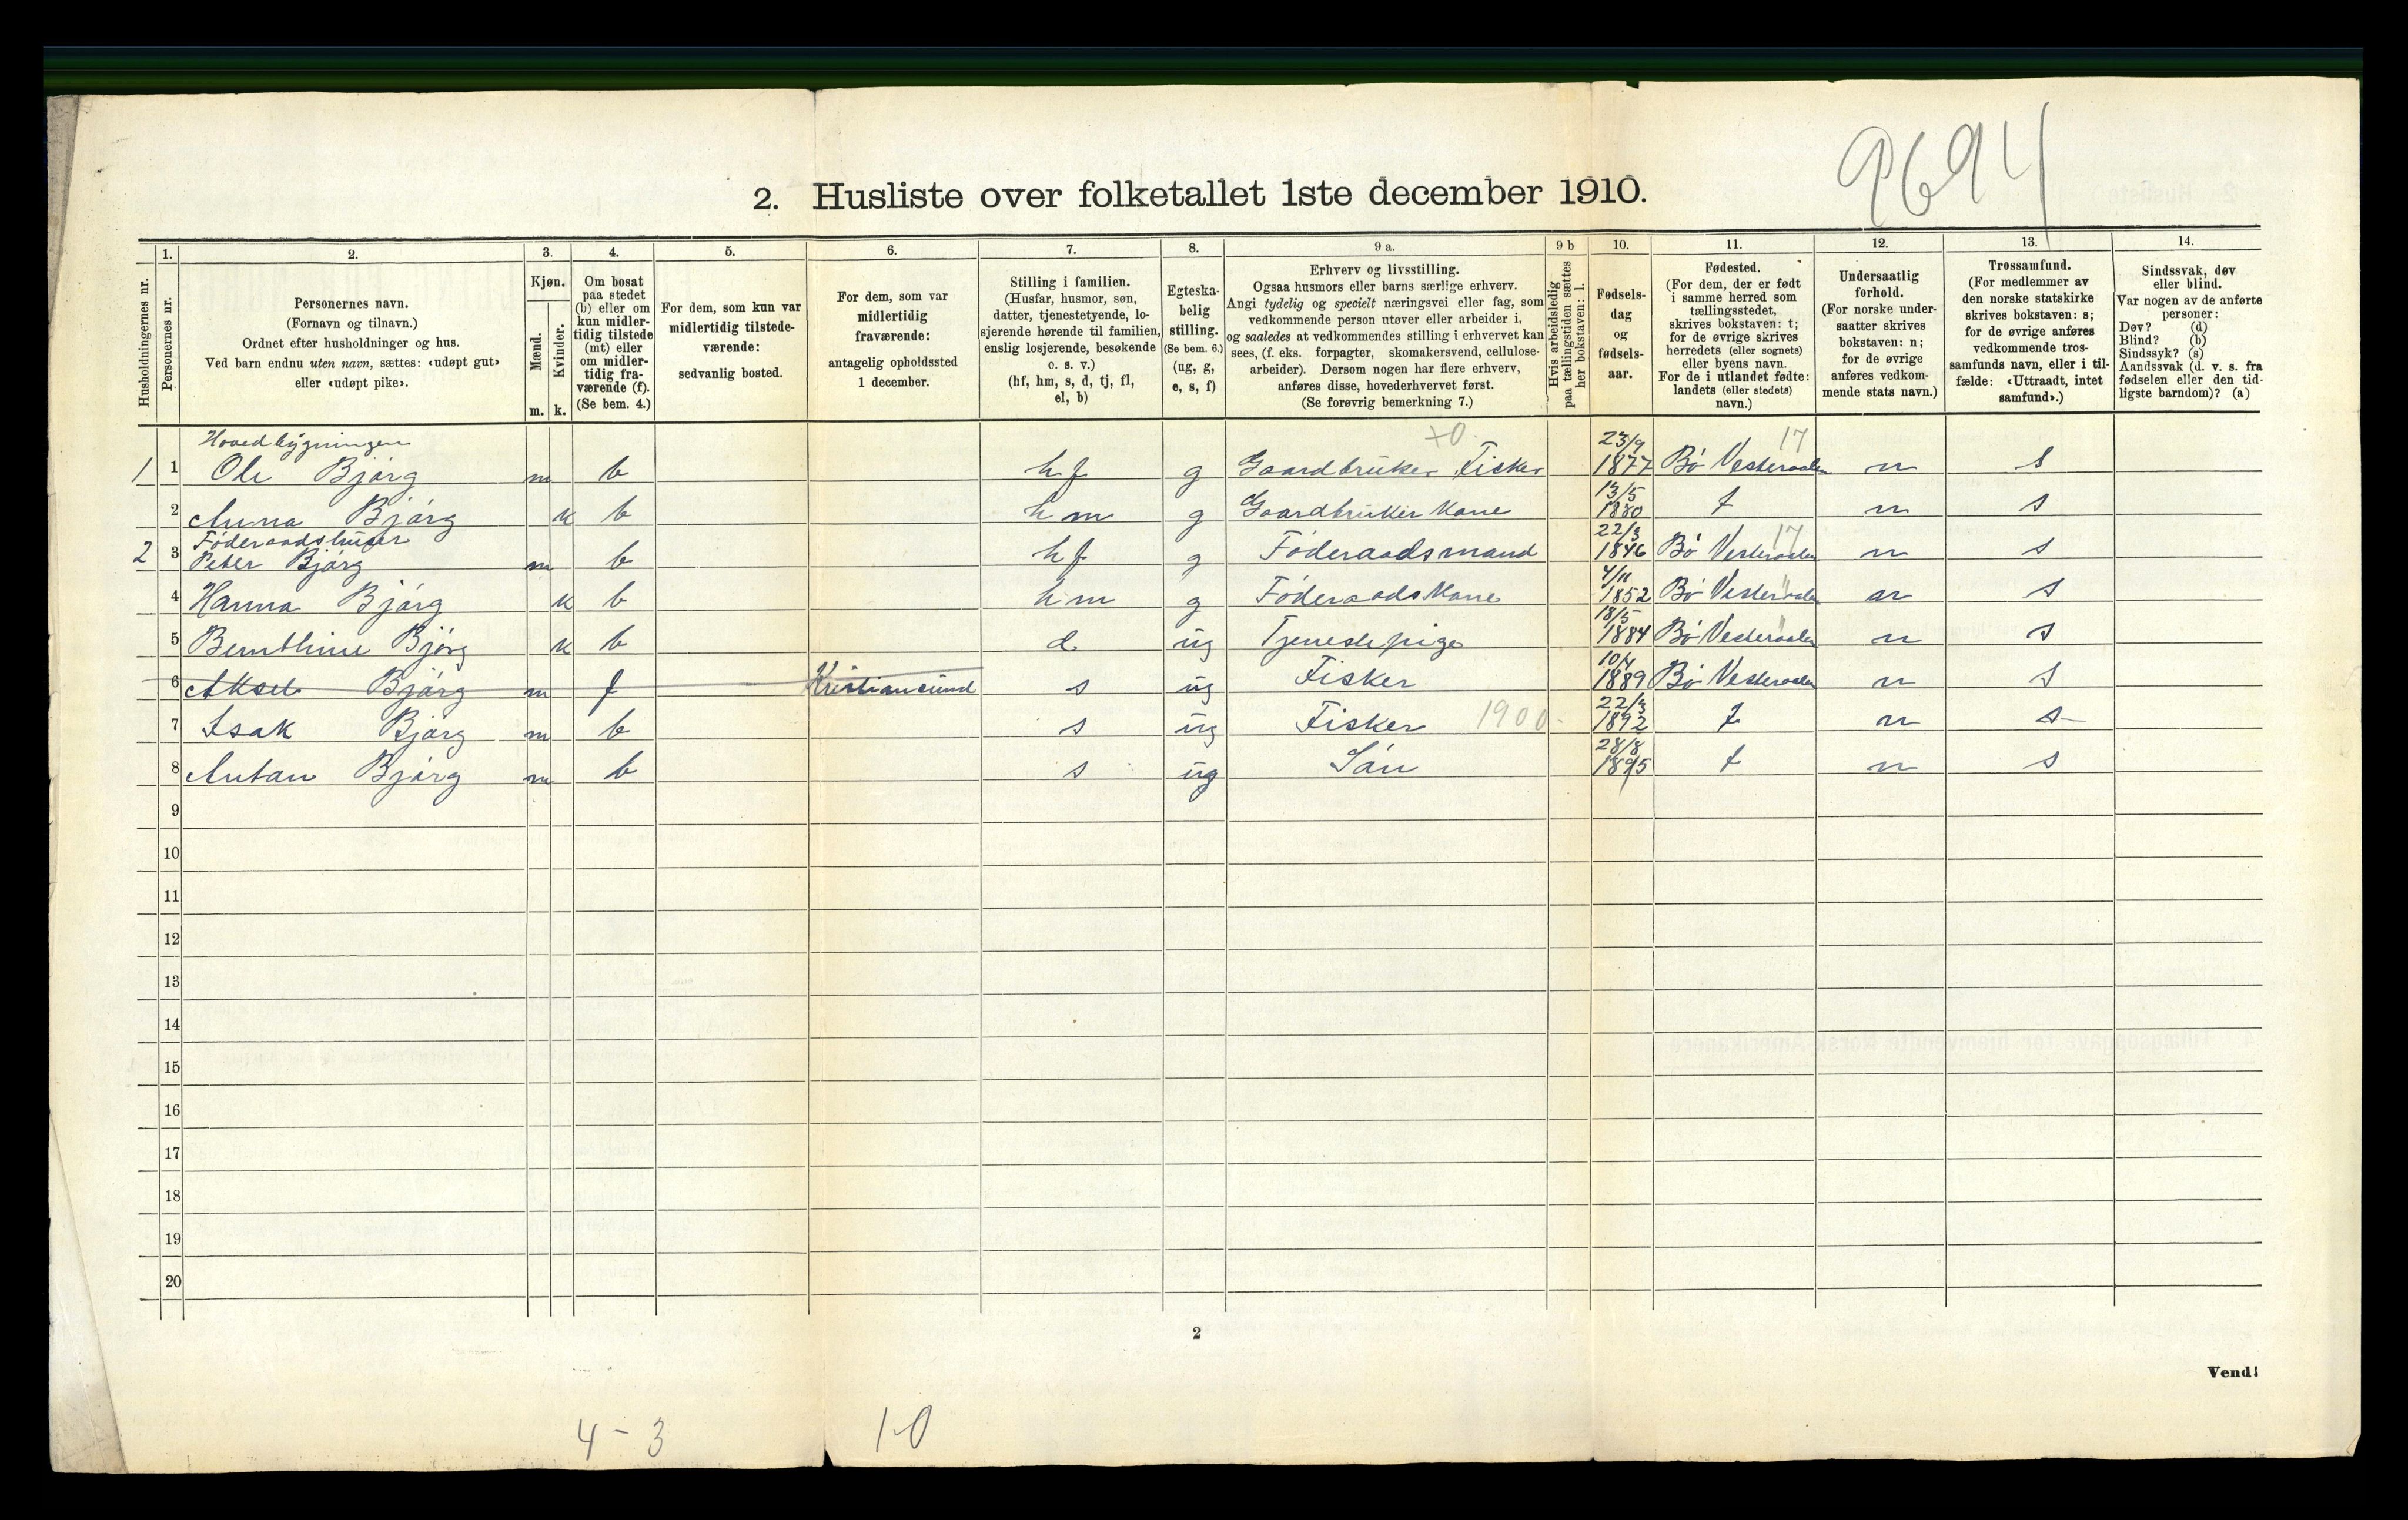 9694
2. Husliste over folketallet 1ste december 1910.
Husholdningernes nr.
1.
Personernes nr.
2.
Personernes navn.
(Fornavn og tilnavn.)
Ordnet efter husholdninger og hus.
Ved barn endnu uten navn, sættes: «udøpt gut»
eller «udøpt pike».
3.
Kjøn.
Mænd.
Kvinder.
m. k.
4.
Om bosat
paa stedet
(b) eller om
kun midler-
tidig tilstede
(mt) eller
om midler-
tidig fra-
værende (f).
(Se bem. 4.)
5.
For dem, som kun var
midlertidig tilstede-
værende:
sedvanlig bosted.
6.
For dem, som var
midlertidig
fraværende:
antagelig opholdssted
1 december.
7.
Stilling i familien.
(Husfar, husmor, søn,
datter, tjenestetyende, lo-
sjerende hørende til familien,
enslig losjerende, besøkende
o. s. v.)
(hf, hm, s, d, tj, fl,
el, b)
8.
Egteska-
belig
stilling.
(Se bem. 6.)
(ug, g,
e, s, f)
9 a.
Erhverv og livsstilling.
Ogsaa husmors eller barns særlige erhverv.
Angi tydelig og specielt næringsvei eller fag, som
vedkommende person utøver eller arbeider i,
og saaledes at vedkommendes stilling i erhvervet kan
sees, (f. eks. forpagter, skomakersvend, cellulose-
arbeider). Dersom nogen har flere erhverv,
anføres disse, hovederhvervet først.
(Se forøvrig bemerkning 7.)
9 b
Hvis arbeidsledig
paa tællingstiden sættes
her bokstaven: l.
10.
Fødsels-
dag
og
fødsels-
aar.
11.
Fødested.
(For dem, der er født
i samme herred som
tællingsstedet,
skrives bokstaven: t;
for de øvrige skrives
herredets (eller sognets)
eller byens navn.
For de i utlandet fødte:
landets (eller stedets)
navn.)
12.
Undersaatlig
forhold.
(For norske under-
saatter skrives
bokstaven: n;
for de øvrige
anføres vedkom-
mende stats navn.)
13.
Trossamfund.
(For medlemmer av
den norske statskirke
skrives bokstaven: s;
for de øvrige anføres
vedkommende tros-
samfunds navn, eller i til-
fælde: «Uttraadt, intet
samfund».)
14.
Sindssvak, døv
eller blind.
Var nogen av de anførte
personer:
Døv? (d)
Blind? (b)
Sindssyk? (s)
Aandssvak (d. v. s. fra
fødselen eller den tid-
ligste barndom)? (a)
Hovedbygningen +0 23/9 17
1 1 Ole Bjørg m b hf g Gaardbruker Fisker 1877 Bø Vesteraalen n s
13/5
2 Anna Bjørg k b hm g Gaardbruker Kone 1880 t n s
Føderaadshuser 22/3 17
2 3 Peter Bjørg m b hf g Føderaadsmand 1846 Bø Vesteraalen n s
4/11 "
4 Hanna Bjørg k b hm g Føderaads Kone 1852 Bø Vesteraalen n s
18/5 "
5 Bernthine Bjørg k b d ug Tjenestepige 1884 Bø Vesteraalen n s
10/4
6 Aksel Bjørg m f Kristiansund s ug Fisker 1889 Bø Vesteraalen n s
22/3
7 Isak Bjørg m b s ug Fisker 1900 1892 t n s
28/8
8 Antan Bjørg m b s ug Søn 1895 t n s
9
10
11
12
13
14
15
16
17
18
19
20
2
Vend!
4-3 1-0